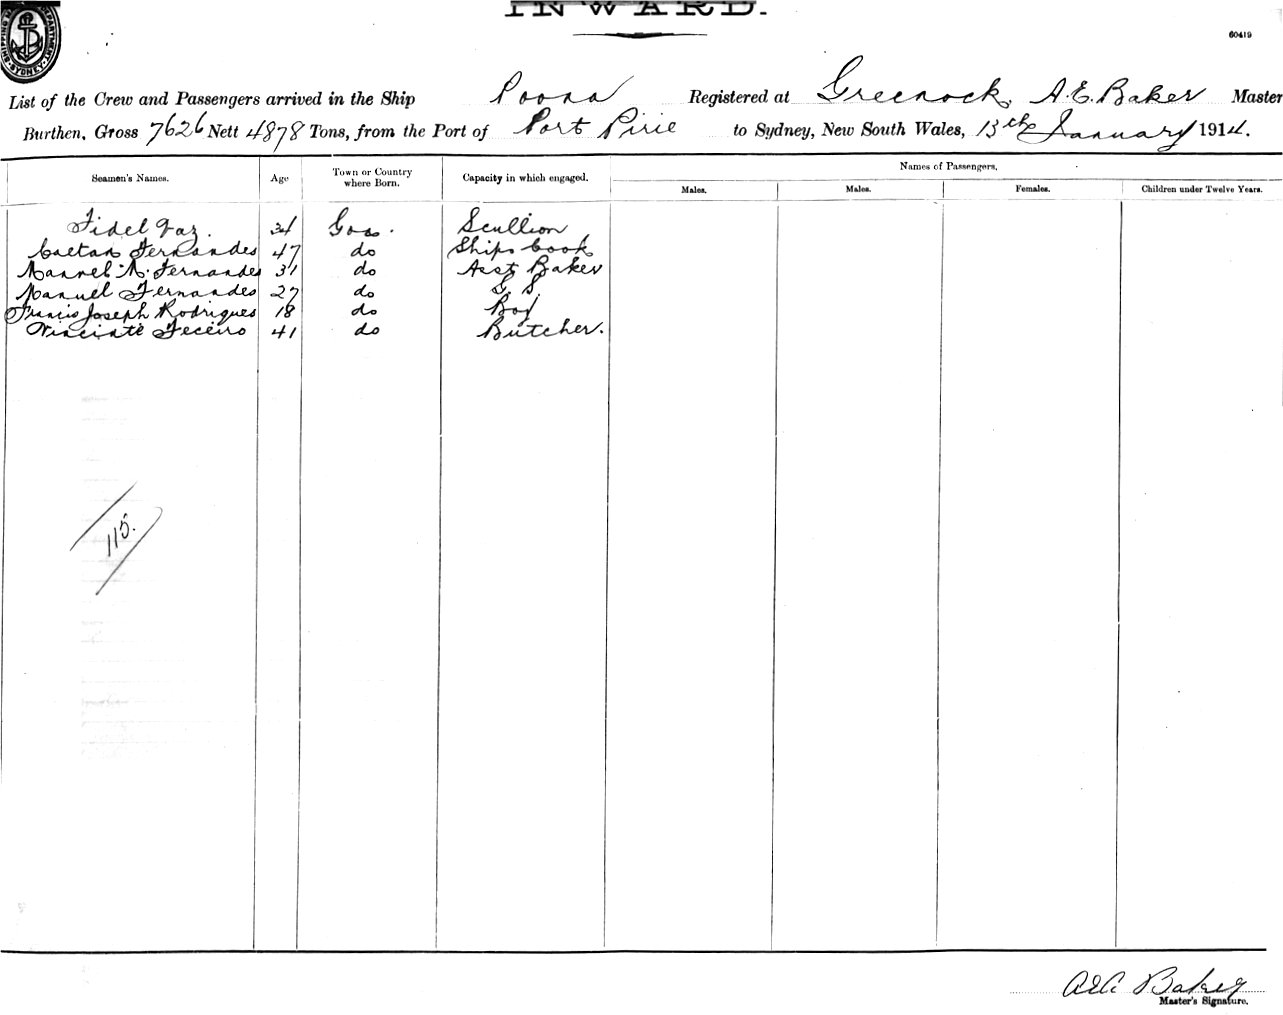 INWARD.
60419
SHIPPING DEPARTMENT SYDNEY
List of the Crew and Passengers arrived in the Ship Poona Registered at Greenock, A. E. Baker Master
Burthen, Gross 7626 Nett 4878 Tons, from the Port of Port Pirie to Sydney, New South Wales, 13th January 1914.
Seamen's Names. Age Town or Country where Born. Capacity in which engaged. Names of Passengers.
Males. Males. Females. Children under Twelve Years.
Fidel Vaz. 34 Goa. Scullion
Caetan Fernandes 47 do Ships Cook
Manuel M. Fernandes 31 do Asst Baker
Manuel Fernandes 27 do G. S.
Francis Joseph Rodrigues 18 do Boy
41 do Butcher.
115.
Baker
Master's Signature.